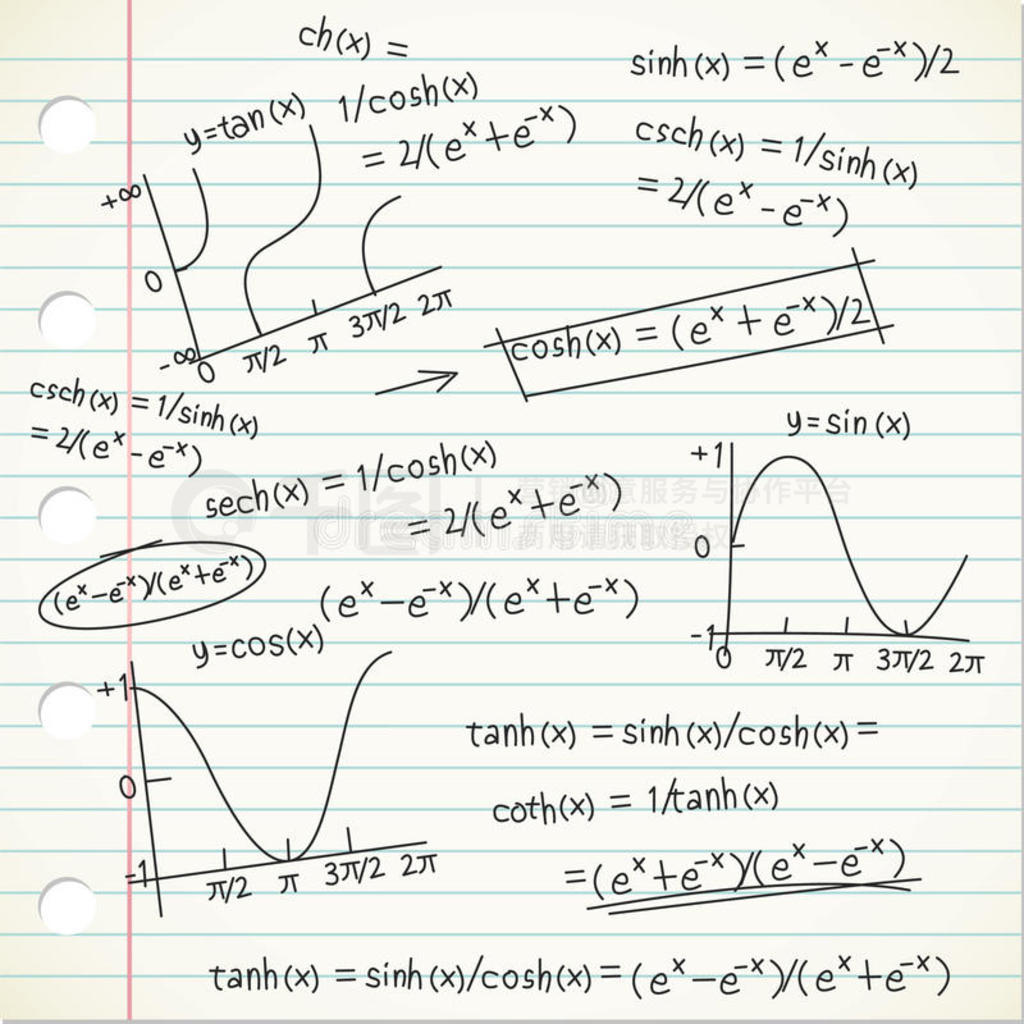 ch(x) =
1/cosh(x)
= 2/(eˣ+e⁻ˣ)
sinh(x) = (eˣ - e⁻ˣ)/2
csch(x) = 1/sinh(x)
= 2/(eˣ - e⁻ˣ)
y=tan(x)
+∞
0
-∞
0 π/2 π 3π/2 2π
cosh(x) = (eˣ + e⁻ˣ)/2
csch(x) = 1/sinh(x)
= 2/(eˣ - e⁻ˣ)
sech(x) = 1/cosh(x)
= 2/(eˣ+e⁻ˣ)
y=sin(x)
+1
0
-1
0 π/2 π 3π/2 2π
(eˣ-e⁻ˣ)/(eˣ+e⁻ˣ)
(eˣ-e⁻ˣ)/(eˣ+e⁻ˣ)
y=cos(x)
+1
0
-1
π/2 π 3π/2 2π
tanh(x) = sinh(x)/cosh(x) =
coth(x) = 1/tanh(x)
=(eˣ+e⁻ˣ)/(eˣ-e⁻ˣ)
tanh(x) = sinh(x)/cosh(x) = (eˣ-e⁻ˣ)/(eˣ+e⁻ˣ)